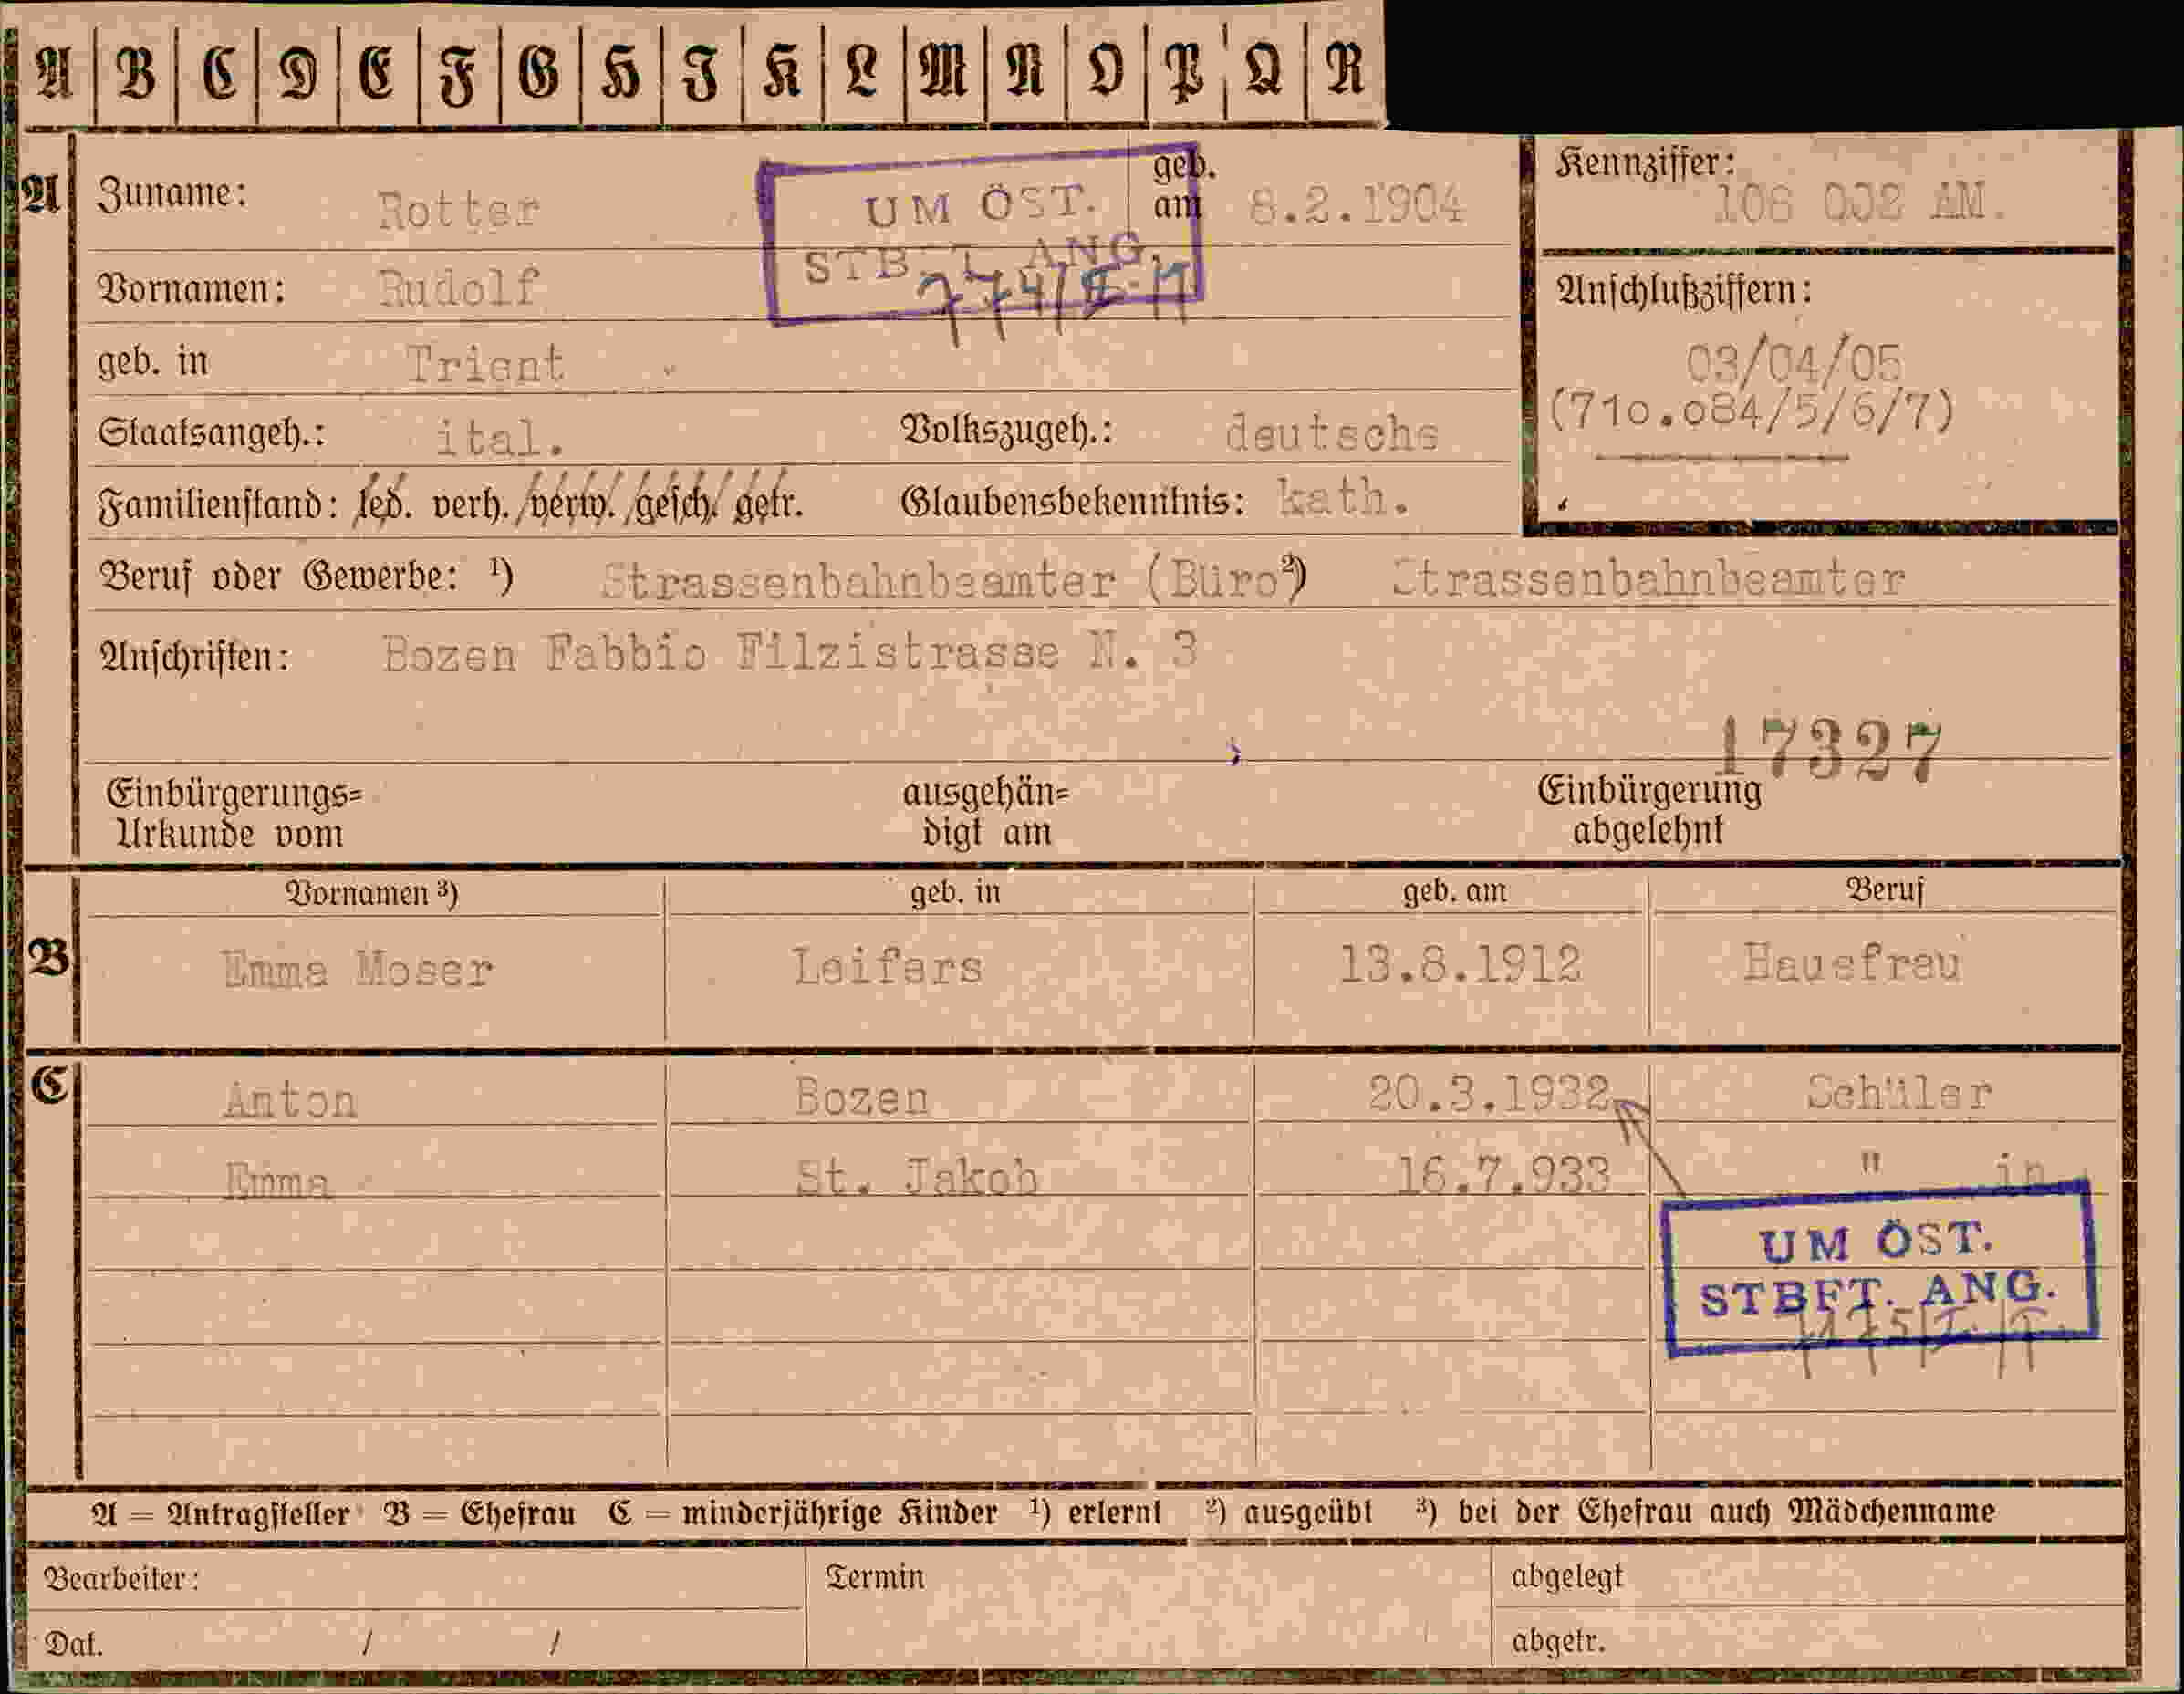 A B C D E F G H I K L M N O P Q R
A Zuname: Rotter geb. am 8.2.1904
UM ÖST.
STBFT. ANG.
Kennziffer:
106 002 AM.
Vornamen: Rudolf
Anschlußziffern:
03/04/05
(710.084/5/6/7)
geb. in Trient
Staatsangeh.: ital. Volkszugeh.: deutsche
Familienstand: led. verh. verw. gesch. getr. Glaubensbekenntnis: kath.
Beruf oder Gewerbe: ¹) Strassenbahnbeamter (Büro) ²) Strassenbahnbeamter
Anschriften: Bozen Fabbio Filzistrasse N. 3
17327
Einbürgerungs= ausgehän= Einbürgerung
Urkunde vom digt am abgelehnt
Vornamen ³) geb. in geb. am Beruf
B Emma Moser Leifers 13.8.1912 Hausfrau
C Anton Bozen 20.3.1932 Schüler
Emma St. Jakob 16.7.933 " in
UM ÖST.
STBFT. ANG.
A = Antragsteller B = Ehefrau C = minderjährige Kinder ¹) erlernt ²) ausgeübt ³) bei der Ehefrau auch Mädchenname
Bearbeiter: Termin abgelegt
Dat. / / abgetr.